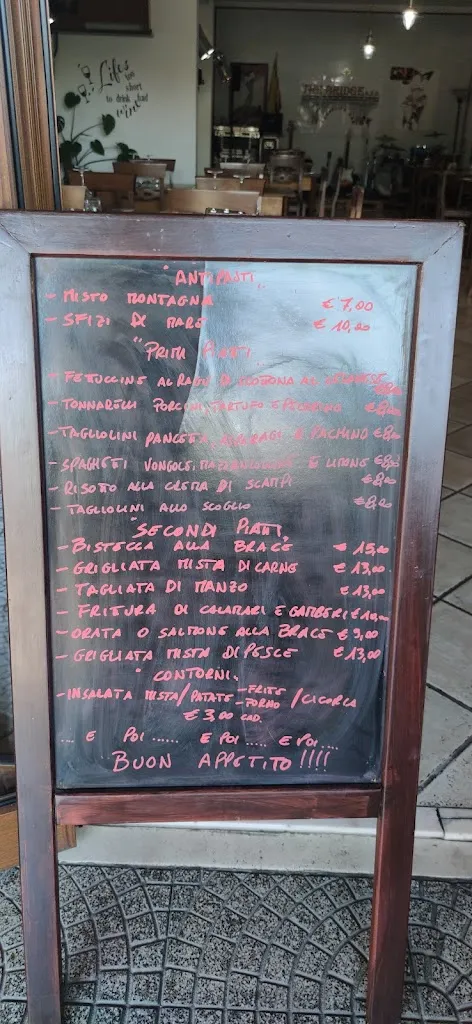 Life's
too
short
to drink bad
wine
THE BRIDGE
"ANTIPASTI"
- MISTO MONTAGNA € 7,00
- SFIZI DI MARE € 10,00
"PRIMI PIATTI"
- FETUCCINE AL RAGÙ DI SCOTTONA
- TONNARELLI PORCINI TARTUFO E PECORINO € 8,00
- TAGLIOLINI PANCETTA, ASPARAGI E PACHINO € 8,00
- SPAGHETTI VONGOLE, E LIMONE € 8,00
- RISOTTO ALLA CREMA DI SCAMPI € 8,00
- TAGLIOLINI ALLO SCOGLIO € 8,00
"SECONDI PIATTI"
- BISTECCA ALLA BRACE € 15,00
- GRIGLIATA MISTA DI CARNE € 13,00
- TAGLIATA DI MANZO € 13,00
- FRITURA DI CALAMARI E GAMBERI € 10,00
- ORATA O SALMONE ALLA BRACE € 9,00
- GRIGLIATA MISTA DI PESCE € 13,00
"CONTORNI"
- INSALATA MISTA/PATATE - FRITE - FORNO /CICORIA
€ 3,00 CAD.
.... E POI ...... E POI ..... E POI ....
BUON APPETITO!!!!